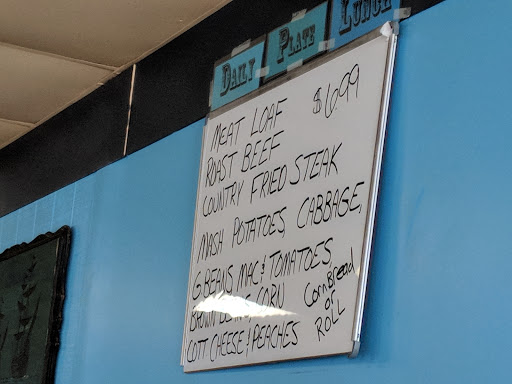 DAILY PLATE LUNCH
MEAT LOAF $6.99
ROAST BEEF
COUNTRY FRIED STEAK
MASH POTATOES, CABBAGE,
G.BEANS MAC & TOMATOES,
BROWN BEANS, CORN
COTT CHEESE & PEACHES
CornBread
or
ROLL